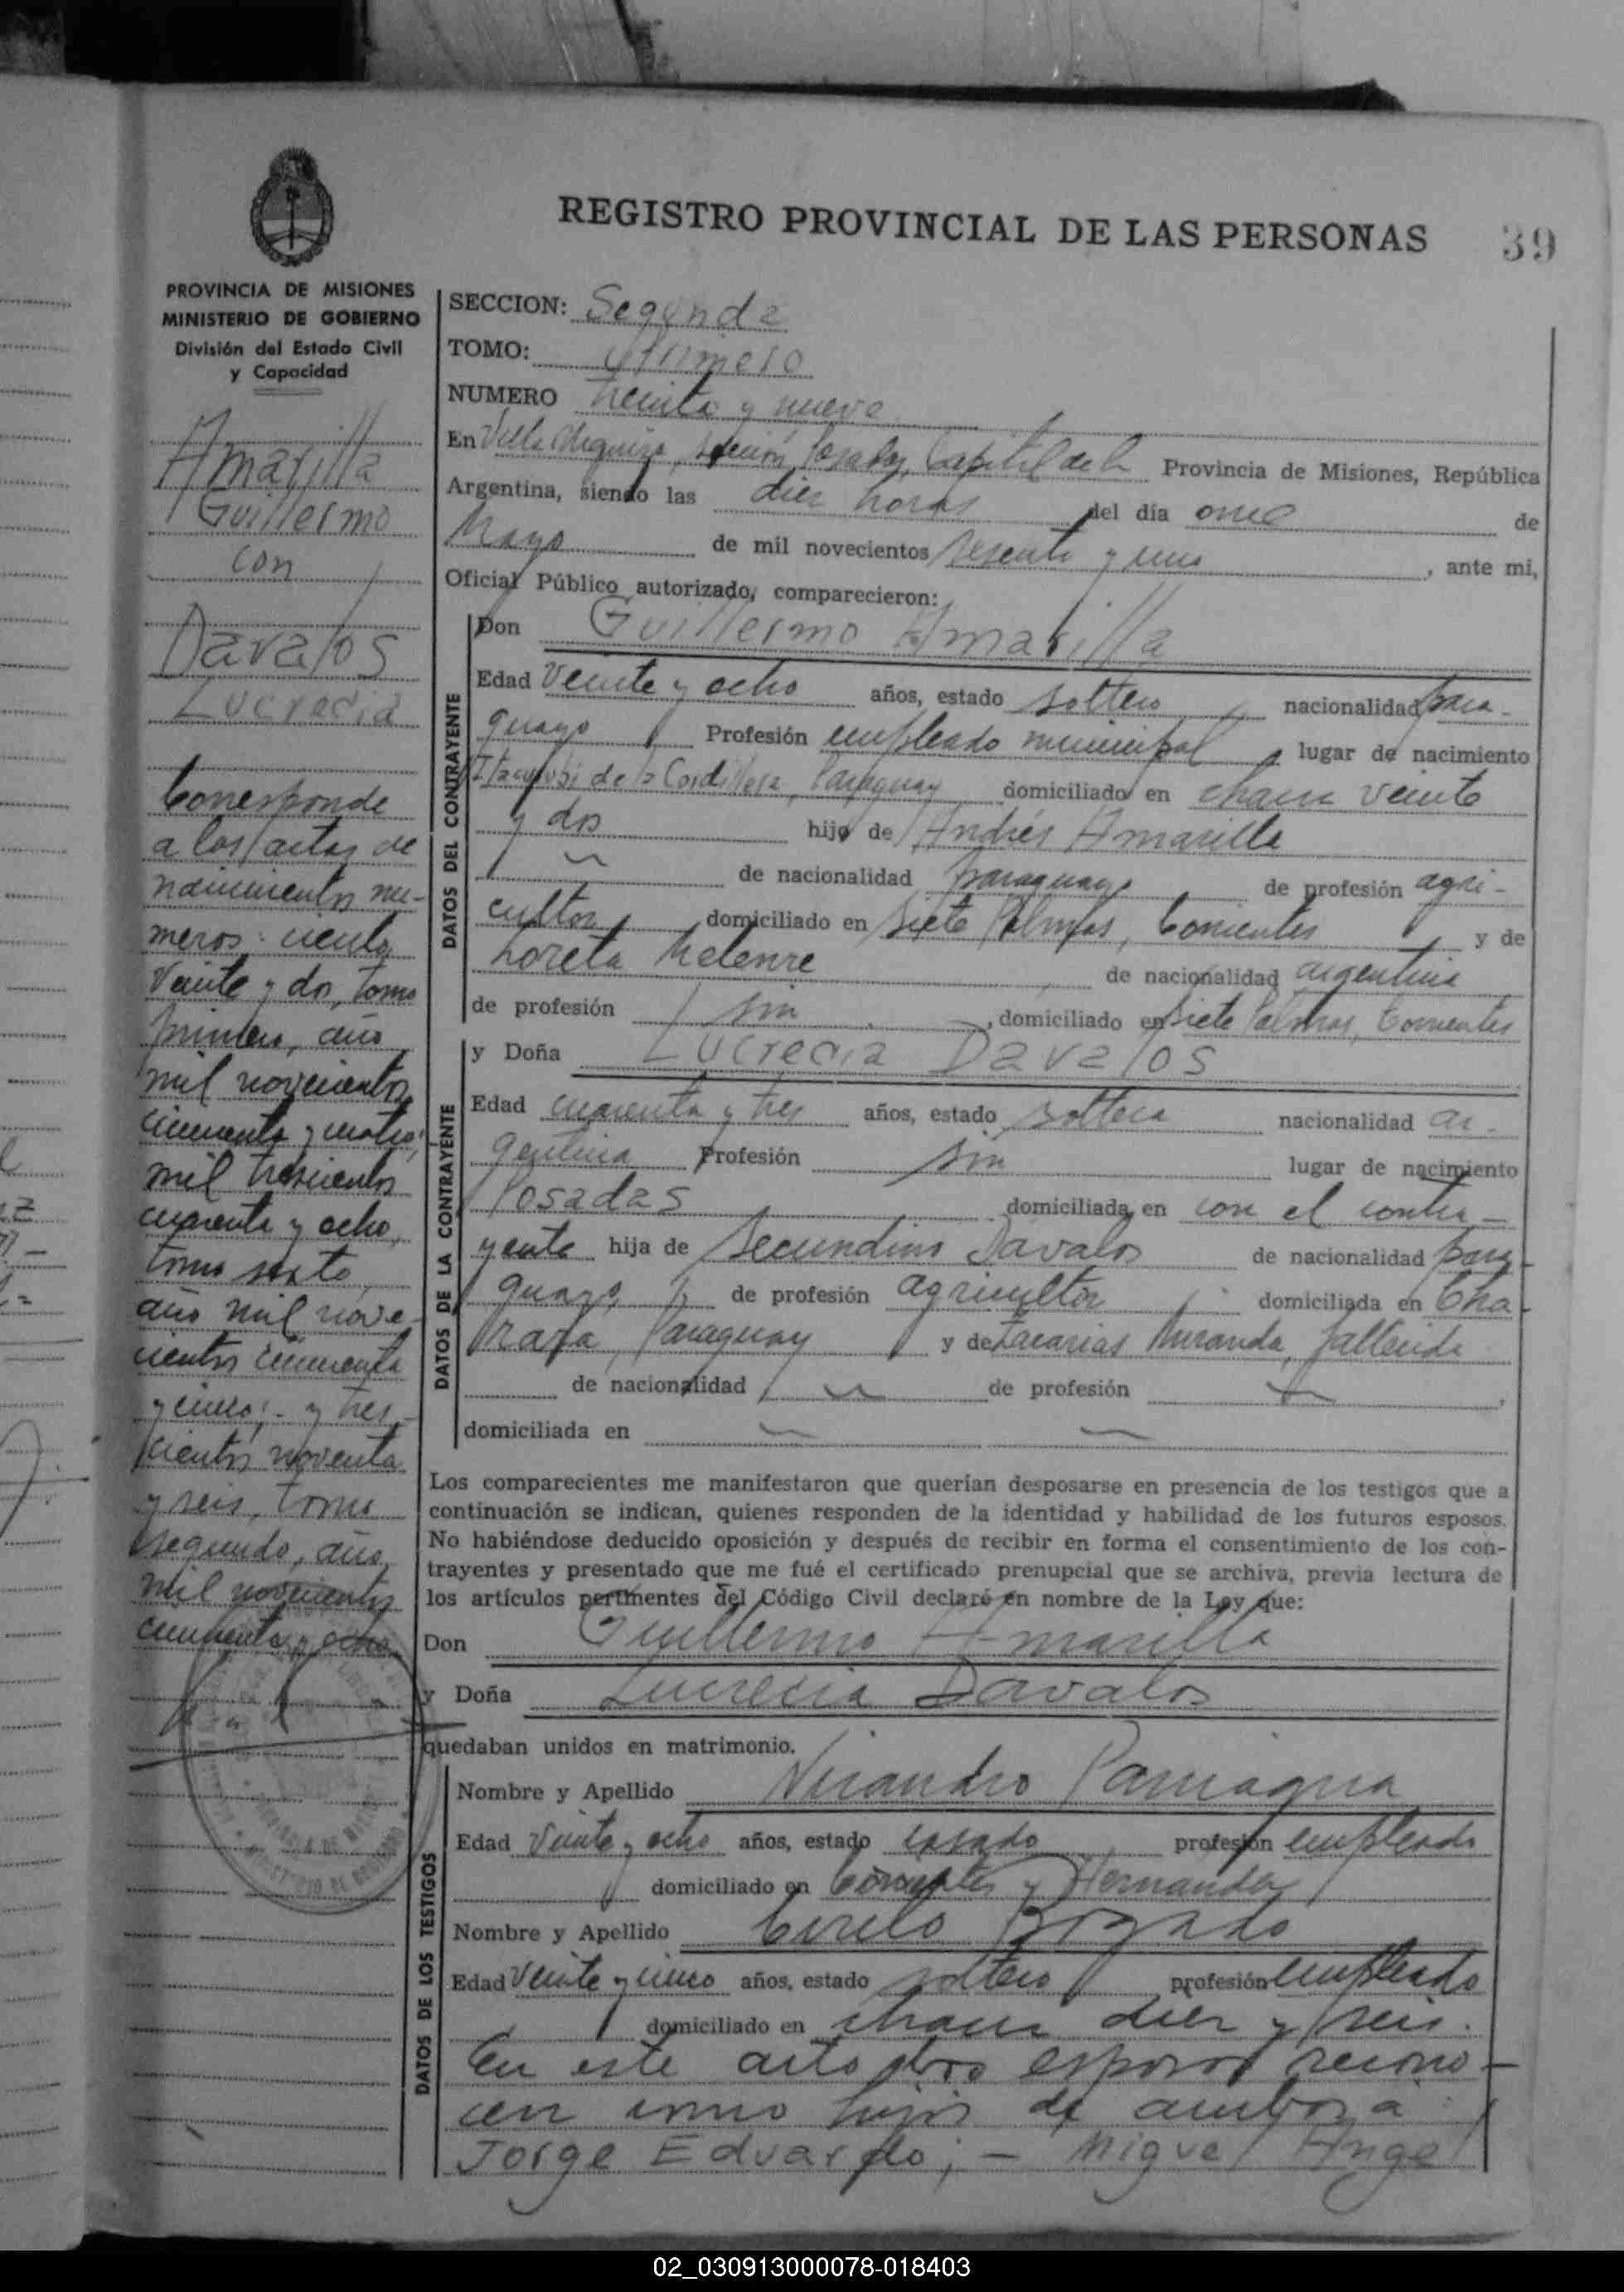 REGISTRO PROVINCIAL DE LAS PERSONAS
39
PROVINCIA DE MISIONES
MINISTERIO DE GOBIERNO
División del Estado Civil
y Capacidad
Amarilla
Guillermo
con
Davalos
Lucrecia
Corresponde
a las actas de
nacimientos nu-
meros: ciento
veinte y dos, tomo
primero, año
mil novecientos
cincuenta y cuatro;
mil trescientos
cuarenta y ocho,
tomo sexto
año mil nove-
cientos cincuenta
y cinco;- y tres-
cientos noventa
y seis, tomo
segundo, año
mil novecientos
cincuenta y ocho
SECCION: Segunda
TOMO: Primero
NUMERO treinta y nueve
En Villa Urquiza, Sección Posadas, Capital de la Provincia de Misiones, República
Argentina, siendo las diez horas del día once de
Mayo de mil novecientos sesenta y uno, ante mi,
Oficial Público autorizado, comparecieron:
DATOS DEL CONTRAYENTE
Don Guillermo Amarilla
Edad veinte y ocho años, estado soltero nacionalidad para-
guayo Profesión empleado municipal lugar de nacimiento
Itacurubi de la Cordillera, Paraguay domiciliado en chacra veinte
y dos hijo de Andrés Amarilla
de nacionalidad paraguayo de profesión agri-
cultor domiciliado en Siete Palmas, Corrientes y de
Loreta de nacionalidad argentina
de profesión sin, domiciliado en Siete Palmas, Corrientes
DATOS DE LA CONTRAYENTE
y Doña Lucrecia Davalos
Edad cuarenta y tres años, estado soltera nacionalidad ar-
gentina Profesión sin lugar de nacimiento
Posadas domiciliada en con el contra-
yente hija de Secundino Davalos de nacionalidad para-
guayo de profesión agricultor domiciliada en
Paraguay y de Zacarias Miranda, fallecida
de nacionalidad de profesión
domiciliada en
Los comparecientes me manifestaron que querían desposarse en presencia de los testigos que a
continuación se indican, quienes responden de la identidad y habilidad de los futuros esposos.
No habiéndose deducido oposición y después de recibir en forma el consentimiento de los con-
trayentes y presentado que me fué el certificado prenupcial que se archiva, previa lectura de
los artículos pertinentes del Código Civil declaré en nombre de la Ley que:
Don Guillermo Amarilla
y Doña Lucrecia Davalos
quedaban unidos en matrimonio.
DATOS DE LOS TESTIGOS
Nombre y Apellido Nicandro Paniagua
Edad veinte y ocho años, estado casado profesión empleado
domiciliado en Corrientes y Hernández
Nombre y Apellido Cirilo Bogado
Edad veinte y cinco años, estado soltero profesión empleado
domiciliado en chacra diez y seis.
En este acto los esposos recono-
cen como hijos de ambos a:
Jorge Eduardo;- Miguel Angel
02_030913000078-018403